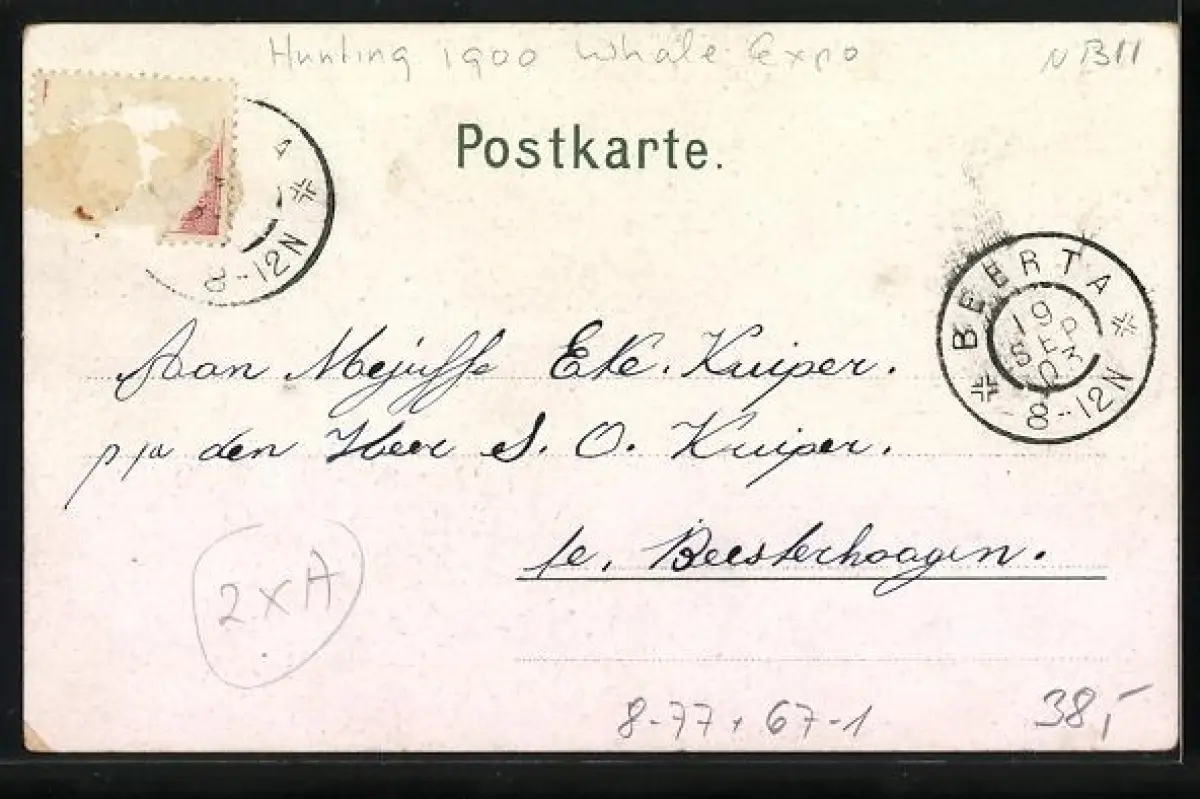 Hunting 1900 Whale Expo
Postkarte.
8-12N
BEERTA
19
SEP
03
8-12N
Aan Mejuffr Eke. Kuiper.
p/a den Heer S. O. Kuiper.
te. Beesterhoogen.
2xA
8-77 + 67-1
38,-